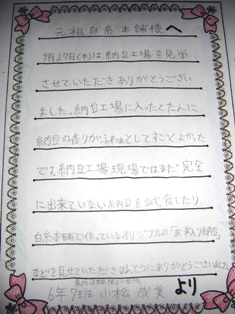 元祖白糸本舗様へ
9月27日(水)は納豆工場を見学
させていただきありがとうござい
ました。納豆工場に入ったとたんに
納豆の香りがふわぁとしてすごくよかった
でも納豆工場現場ではまだ完全
に出来ていない納豆を試食したり
白糸本舗で作っているオリジナルの「お米入り納豆」
などを見せていただきほんとうにありがとうございました
6年7班 小松 成美 より